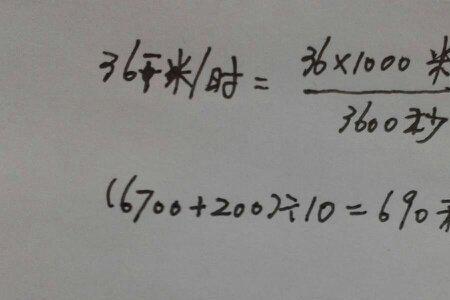 36千米/时 = 36×1000 米 / 3600 秒
(6700+200)÷10=690